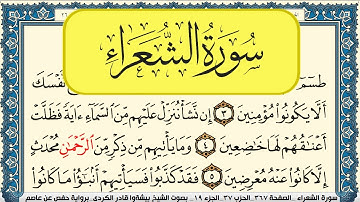 سُورَةُ الشُّعَرَاءِ
طسٓمٓ نَّفْسَكَ
أَلَّا يَكُونُوا۟ مُؤْمِنِينَ ٣ إِن نَّشَأْ نُنَزِّلْ عَلَيْهِم مِّنَ ٱلسَّمَآءِ ءَايَةً فَظَلَّتْ
أَعْنَـٰقُهُمْ لَهَا خَـٰضِعِينَ ٤ وَمَا يَأْتِيهِم مِّن ذِكْرٍ مِّنَ ٱلرَّحْمَـٰنِ مُحْدَثٍ
إِلَّا كَانُوا۟ عَنْهُ مُعْرِضِينَ ٥ فَقَدْ كَذَّبُوا۟ فَسَيَأْتِيهِمْ أَنۢبَـٰٓؤُا۟ مَا كَانُوا۟
سورة الشعراء _ الصفحة ٣٦٧ _ الحزب ٣٧ _ الجزء ١٩ _ بصوت الشيخ بيشةوا قادر الكردي _ برواية حفص عن عاصم